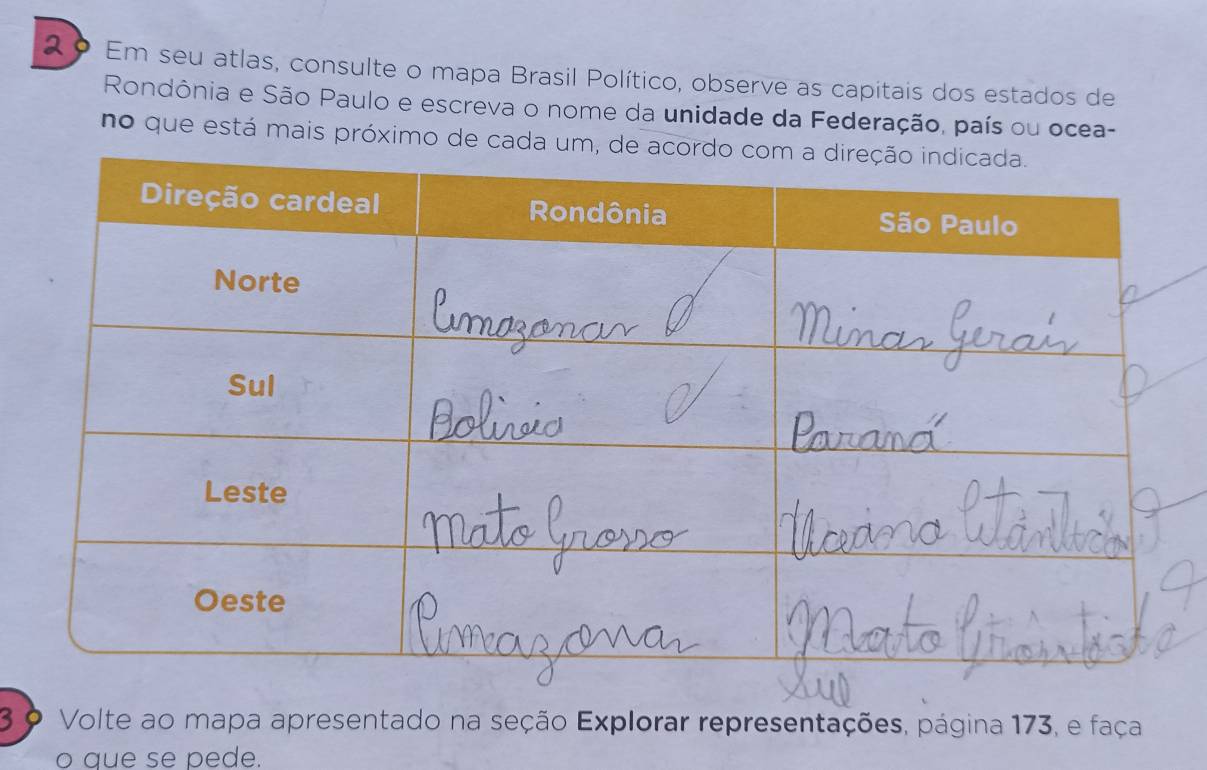 2 Em seu atlas, consulte o mapa Brasil Político, observe as capitais dos estados de
Rondônia e São Paulo e escreva o nome da unidade da Federação, país ou ocea-
no que está mais próximo de cada um, de acordo com a direção indicada.
Direção cardeal Rondônia São Paulo
Norte Amazonas Minas Gerais
Sul Bolívia Paraná
Leste Mato Grosso Oceano Atlântico
Oeste Amazonas Mato Grosso do
Sul
3 Volte ao mapa apresentado na seção Explorar representações, página 173, e faça
o que se pede.